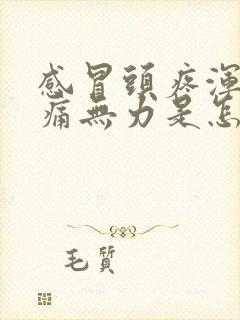 感冒頭疼渾
痛無力是怎
毛質